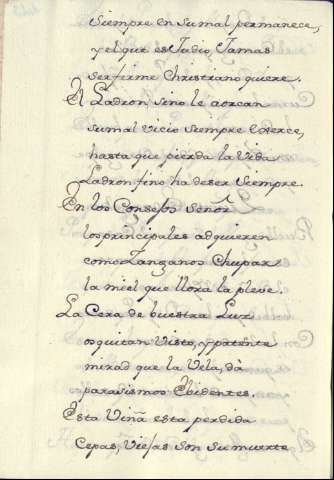 Siempre en su mal permanece,
y el que es Judio, Jamas
ser firme Christiano quiere.
El Ladron sino le aorcan
su mal vicio siempre exerce,
hasta que pierda la Vida
Ladron fino ha de ser Siempre.
En los Consejos Señor
los principales adquieren
como Zanganos Chupar
la miel que llora la pleve.
La Cera de buestra Luz
os quitan Visto, y patente
mirad que la Vela, dà
parasismos Ebidentes.
Esta Viña esta perdida
Cepas, Viejas son su muerte